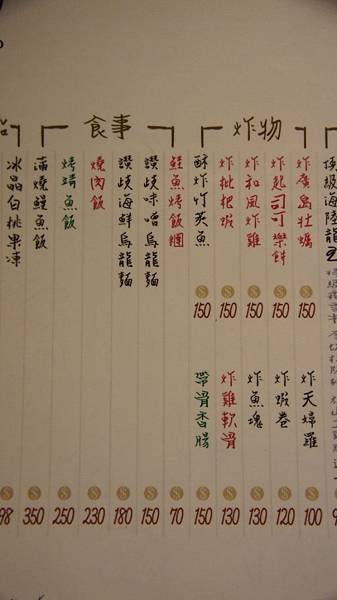 頂級海陸龍
炸物
炸廣島牡蠣 150
炸天婦羅 100
炸起司可樂餅 150
炸蝦卷 120
炸和風炸雞 150
炸魚塊 130
炸枇杷蝦 150
炸雞軟骨 130
酥炸竹筴魚 150
帶骨香腸 150
食事
鮭魚烤飯糰 70
讚岐味噌烏龍麵 150
讚岐海鮮烏龍麵 180
燒肉飯 230
烤鯖魚飯 250
蒲燒鰻魚飯 350
冰晶白桃果凍 98